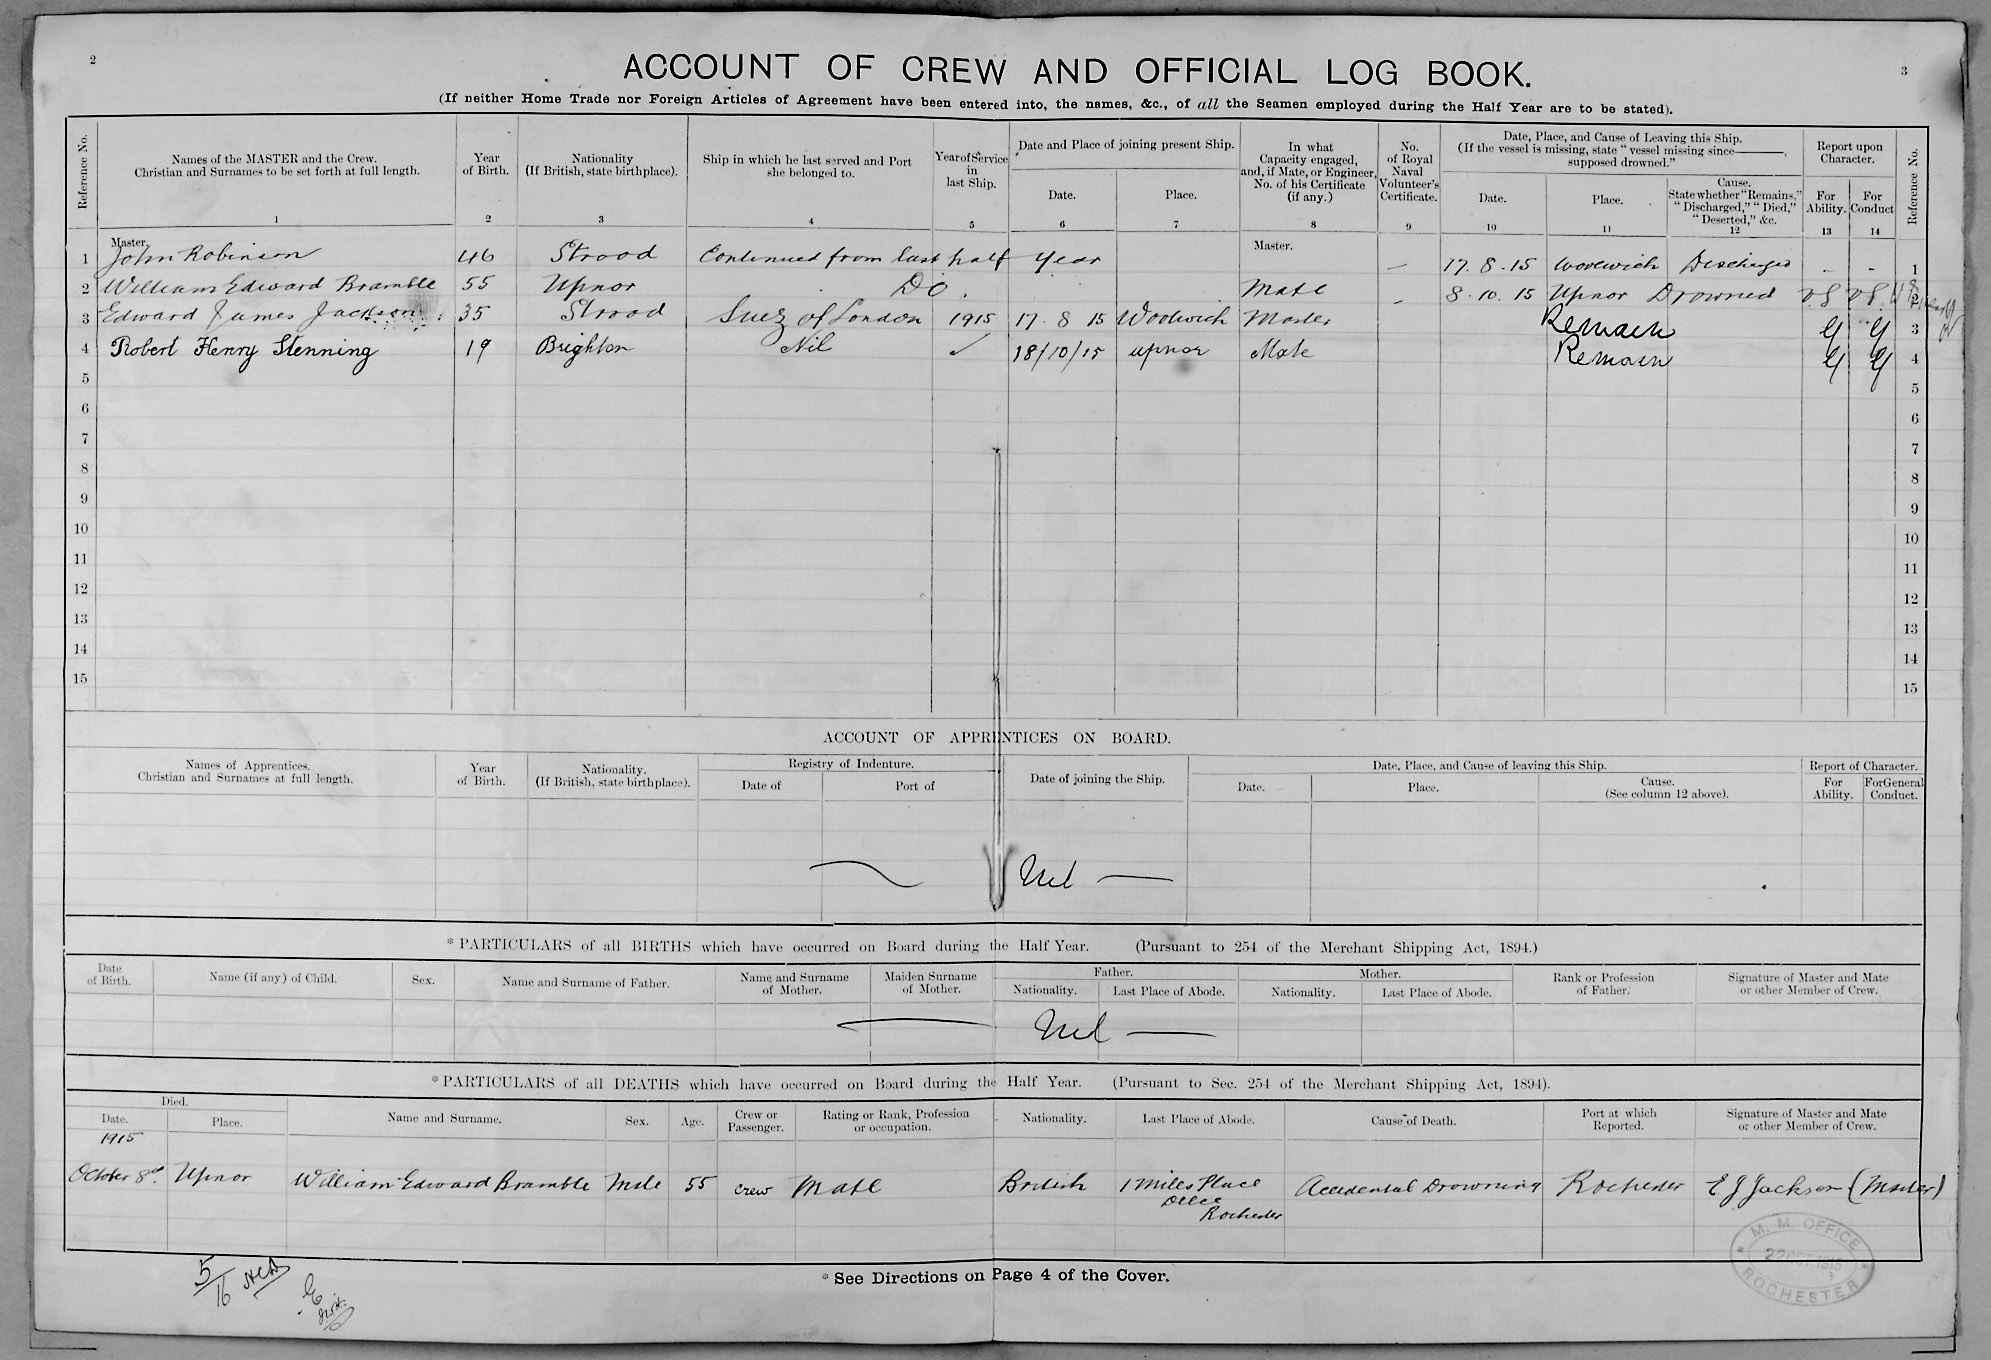 2
3
ACCOUNT OF CREW AND OFFICIAL LOG BOOK.
(If neither Home Trade nor Foreign Articles of Agreement have been entered into, the names, &c., of all the Seamen employed during the Half Year are to be stated).
Reference No.
Names of the MASTER and the Crew.
Christian and Surnames to be set forth at full length.
1
Year of Birth.
2
Nationality
(If British, state birthplace).
3
Ship in which he last served and Port she belonged to.
4
Year of Service in last Ship.
5
Date and Place of joining present Ship.
Date.
6
Place.
7
In what Capacity engaged, and, if Mate, or Engineer, No. of his Certificate (if any.)
8
No. of Royal Naval Volunteer's Certificate.
9
Date, Place, and Cause of Leaving this Ship.
(If the vessel is missing, state "vessel missing since———, supposed drowned."
Date.
10
Place.
11
Cause.
State whether "Remains," "Discharged," "Died," "Deserted," &c.
12
Report upon Character.
For Ability.
13
For Conduct
14
Reference No.
Master.
Master.
1 John Robinson 46 Strood Continued from last half year — 17.8.15 Woolwich Discharged - - 1
2 William Edward Bramble 55 Upnor Do. Mate - 8.10.15 Upnor Drowned V.G V.G. 2
3 Edward James Jackson 35 Strood Suez of London 1915 17 8 15 Woolwich Master Remain G G 3
4 Robert Henry Stenning 19 Brighton Nil ✓ 18/10/15 upnor Mate Remain G G 4
5 5
6 6
7 7
8 8
9 9
10 10
11 11
12 12
13 13
14 14
15 15
ACCOUNT OF APPRENTICES ON BOARD.
Names of Apprentices.
Christian and Surnames at full length.
Year of Birth.
Nationality.
(If British, state birthplace).
Registry of Indenture.
Date of
Port of
Date of joining the Ship.
Date, Place, and Cause of leaving this Ship.
Date.
Place.
Cause.
(See column 12 above).
Report of Character.
For Ability.
For General Conduct.
Nil —
* PARTICULARS of all BIRTHS which have occurred on Board during the Half Year. (Pursuant to 254 of the Merchant Shipping Act, 1894.)
Date of Birth.
Name (if any) of Child.
Sex.
Name and Surname of Father.
Name and Surname of Mother.
Maiden Surname of Mother.
Father.
Nationality.
Last Place of Abode.
Mother.
Nationality.
Last Place of Abode.
Rank or Profession of Father.
Signature of Master and Mate or other Member of Crew.
— Nil —
* PARTICULARS of all DEATHS which have occurred on Board during the Half Year. (Pursuant to Sec. 254 of the Merchant Shipping Act, 1894).
Died.
Date.
Place.
Name and Surname.
Sex.
Age.
Crew or Passenger.
Rating or Rank, Profession or occupation.
Nationality.
Last Place of Abode.
Cause of Death.
Port at which Reported.
Signature of Master and Mate or other Member of Crew.
1915
October 8th. Upnor William Edward Bramble Male 55 crew Mate British 1 Miles Place Accidental Drowning Rochester E J Jackson (Master)
Rochester
M. M. OFFICE
22 OCT. 1915
ROCHESTER
5/16
* See Directions on Page 4 of the Cover.